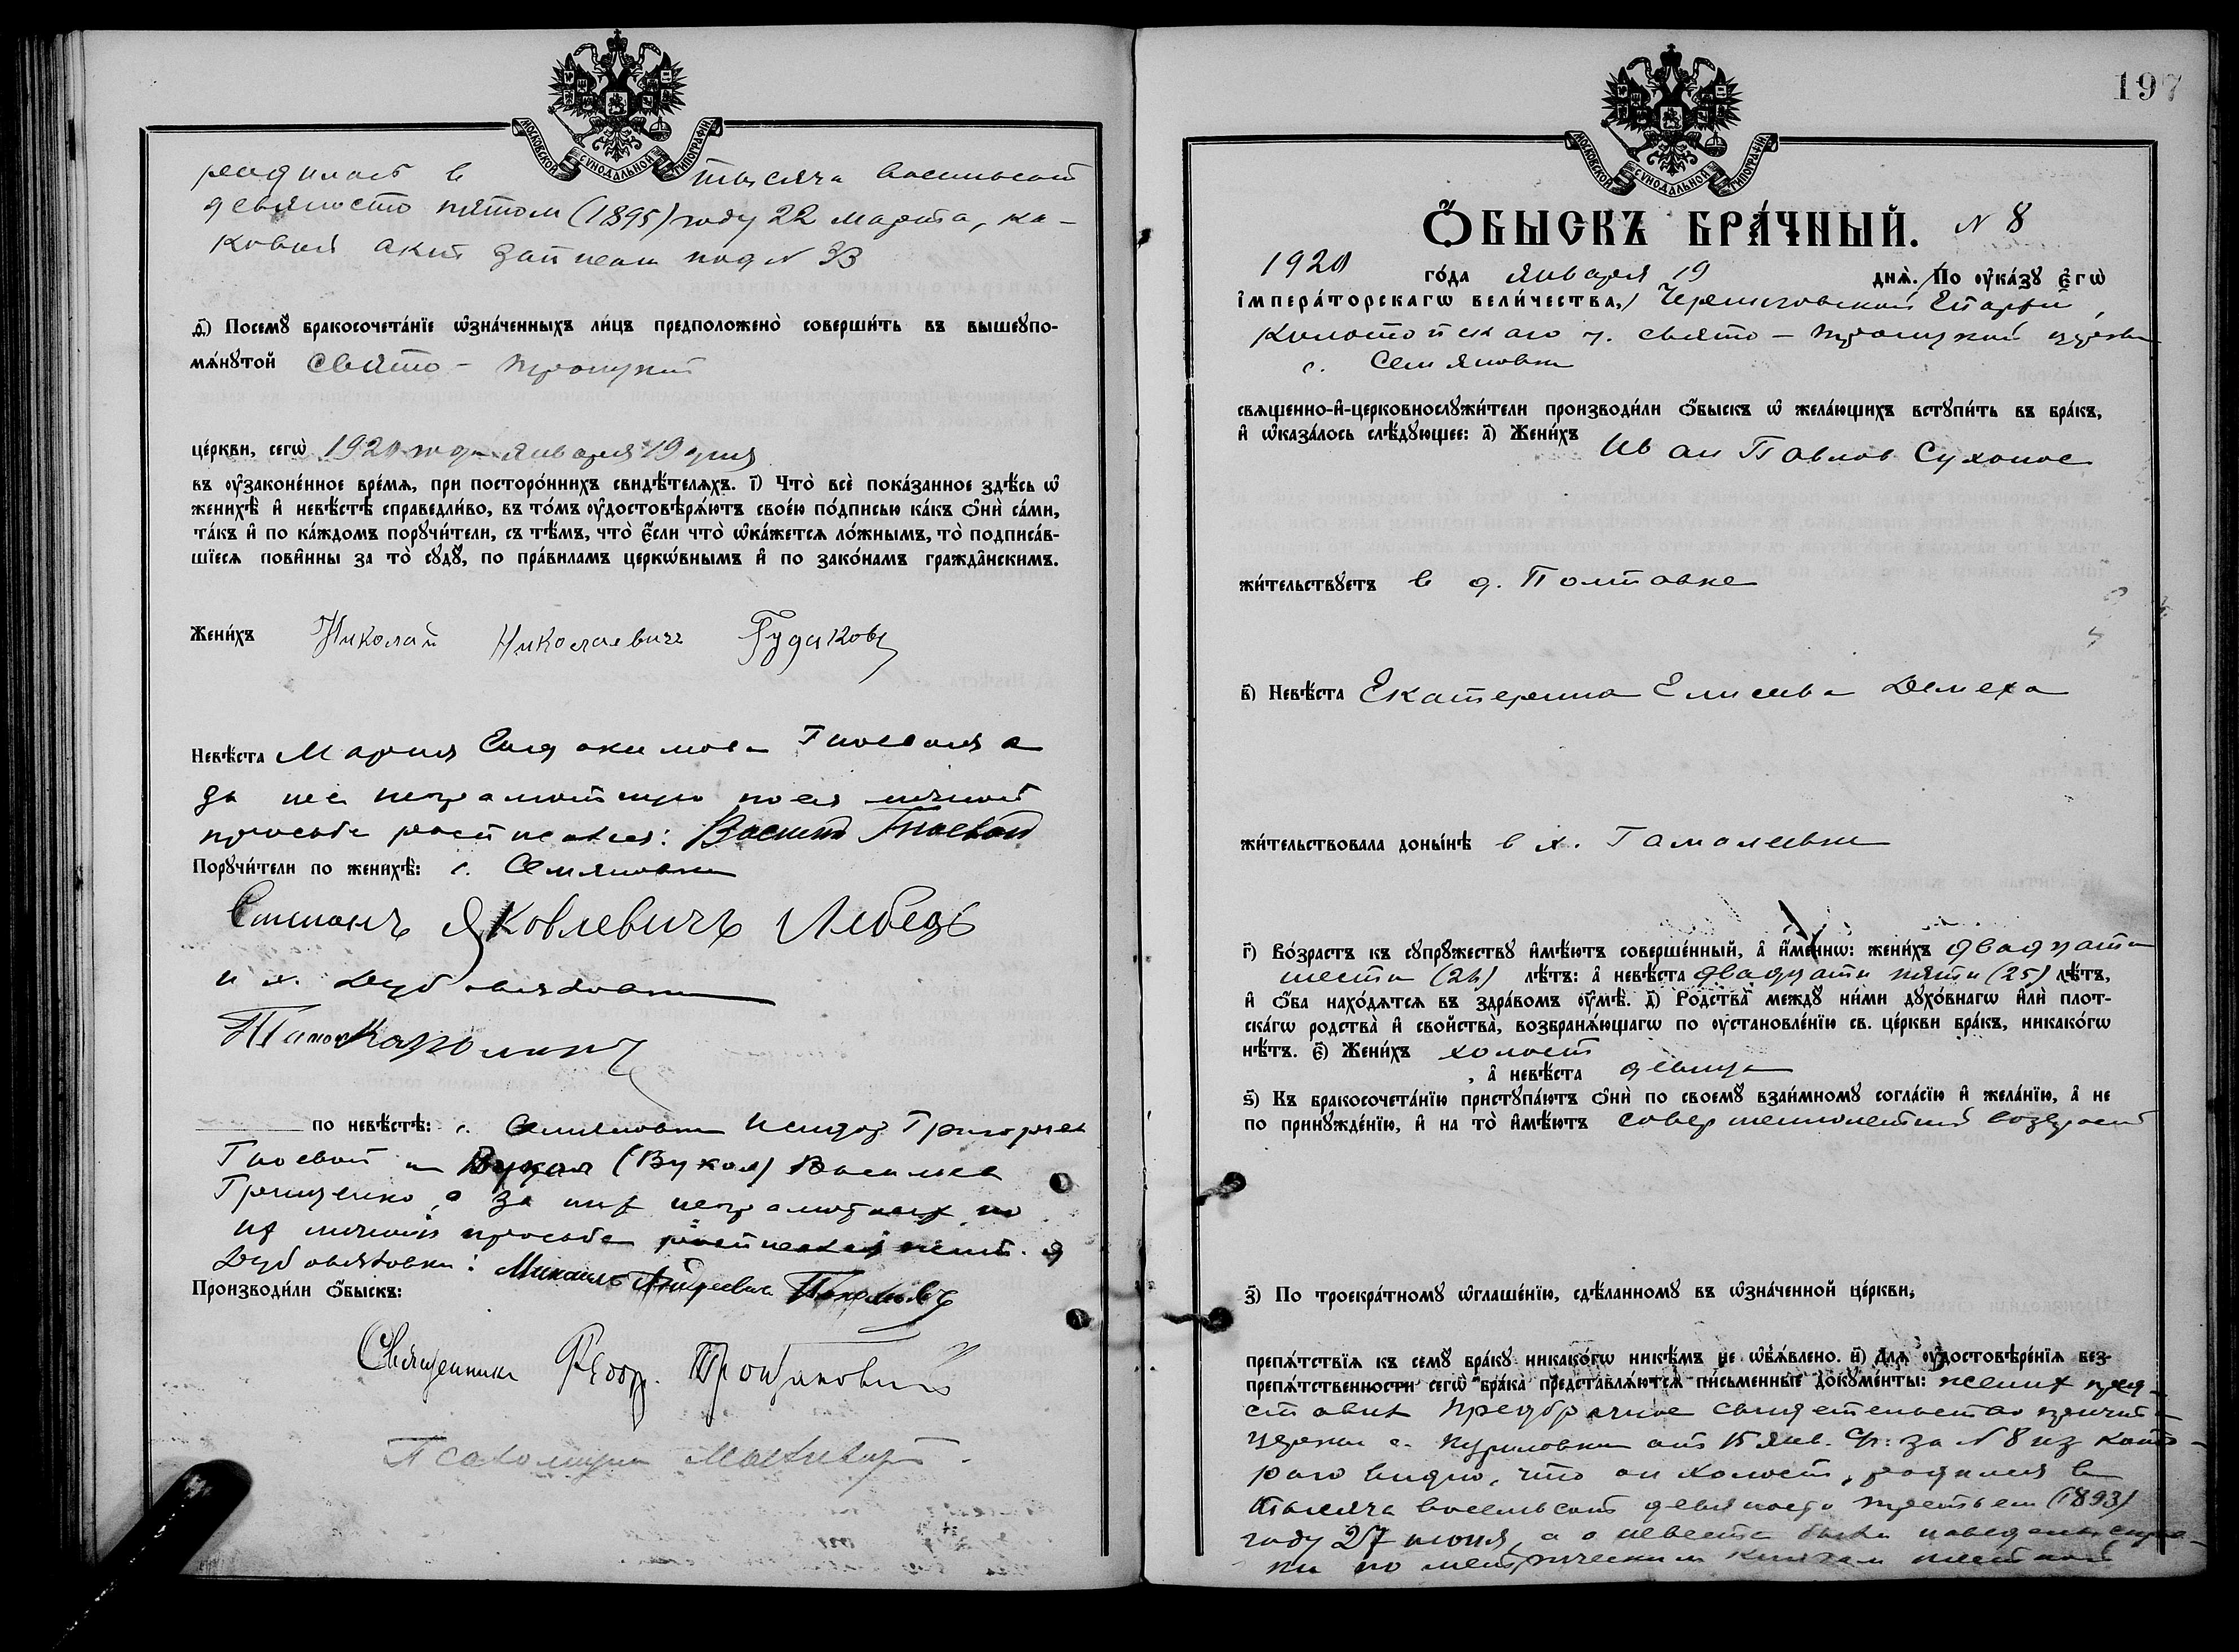 МОСКОВСКОЙ СѴНОДАЛЬНОЙ ТИПОГРАФІИ
родилась в тысяча восемьсот
девяносто пятом (1895) году 22 марта, ка-
ковый акт записан под N 33
д҃) Посемꙋ̀ бракосочета́нїе ѡ҆зна́ченныхъ ли́цъ предположено̀ соверши́ть въ вышеупо-
мѧ́нꙋтой Свято - Троицкой
це́ркви, сегѡ̀ 1920 года января 19 дня
въ ᲂу҆законе́нное вре́мѧ, при посторо́ннихъ свидѣ́телѧхъ. і҃) Что̀ всѐ пока́занное здѣ́сь ѡ҆
женихѣ̀ и҆ невѣ́стѣ справедли́во, въ то́мъ ᲂу҆достовѣрѧ́ютъ свое́ю по́дписью ка́къ ѻ҆нѝ са́ми,
та́къ и҆ по ка́ждомъ порꙋчи́тели, съ тѣ́мъ, что̀ є҆́сли что̀ ѡ҆ка́жетсѧ ло́жнымъ, то̀ подписа́в-
шїесѧ пови́нны за то̀ сꙋдꙋ̀, по пра́виламъ церкѡ́внымъ и҆ по зако́намъ гражда́нскимъ.
Жени́хъ Николай Николаевичъ Гудаковъ
Невѣ́ста Мария Евдокимова Гноевая а
за нее неграмотную по ея личной
просьбе росписался: Василий Гноевой
Порꙋчи́тели по женихѣ̀: с. Семяновки
Степанъ Яковлевичъ Лебедь
и х. Дубовязовки
по невѣ́стѣ: с. Семяновки Исидор Григорьев
Гноевой и Вукол (Вукол) Васильев
Грищенко, а за них неграмотных по
их личной просьбе росписался жит. д
Дубовязовки: Михаилъ Андреевич
Производи́ли ѻ҆́быскъ:
Священникъ Феод.
Псаломщик
197
МОСКОВСКОЙ СѴНОДАЛЬНОЙ ТИПОГРАФІИ
Ѻ҆́БЫСКЪ БРА́ЧНЫЙ. N 8
1920 го́да января 19 днѧ̀. По ᲂу҆ка́зꙋ є҆гѡ̀
і҆мпера́торскагѡ вели́чества, Черниговской Епархии,
Конотопскаго у. Свято - Троицкой церкви
с. Семяновки
свѧще́нно-и҆-церковнослꙋжи́тели производи́ли ѻ҆́быскъ ѡ҆ жела́ющихъ встꙋпи́ть въ бра́къ,
и҆ ѡ҆каза́лось слѣ́дꙋющее: а҃) Жени́хъ Иван Павлов Сухонос
жи́тельствꙋетъ в д. Полтавке
в҃) Невѣ́ста Екатерина Елисеева Демеха
жи́тельствовала доны́нѣ в х. Гамалеевки
г҃) Во́зрастъ къ сꙋпрꙋ́жествꙋ и҆мѣ́ютъ соверше́нный, а҆ и҆́меннѡ: жени́хъ двадцати
шести (26) лѣ́тъ: а҆ невѣ́ста двадцати пяти (25) лѣ́тъ,
и҆ ѻ҆́ба нахо́дѧтсѧ въ здра́вомъ ᲂу҆мѣ̀. д҃) Родства̀ междꙋ̀ ни́ми дꙋхо́внагѡ и҆лѝ плот-
ска́гѡ родства̀ и҆ свойства̀, возбранѧ́ющагѡ по ᲂу҆становле́нїю св. це́ркви бра́къ, никако́гѡ
нѣ́тъ. є҃) Жени́хъ холост
, а҆ невѣ́ста девица
ѕ҃) Къ бракосочета́нїю пристꙋпа́ютъ ѻ҆нѝ по своемꙋ̀ взаи́мномꙋ согла́сїю и҆ жела́нїю, а҆ не
по принꙋжде́нїю, и҆ на то̀ и҆мѣ́ютъ совершеннолетний возраст
з҃) По троекра́тномꙋ ѡ҆глаше́нїю, сдѣ́ланномꙋ въ ѡ҆зна́ченной це́ркви,
препѧ́тствїѧ къ семꙋ̀ бра́кꙋ никако́гѡ никѣ́мъ не ѡ҆б̾ѧ́влено. и҃) Длѧ̀ ᲂу҆достовѣре́нїѧ без-
препѧ́тственности сегѡ̀ бра́ка представлѧ́ютсѧ пи́сьменные докꙋме́нты: жених пред-
ставил предбрачное свидетельство причта
церкви с. Куриловки от 15 янв. с/г. за N 8 из кото-
раго видно, что он холост, родился в
тысяча восемьсот девяносто третьем (1893)
году 27 июня, а о невесте были наведены справ-
ки по метрическим книгам местной